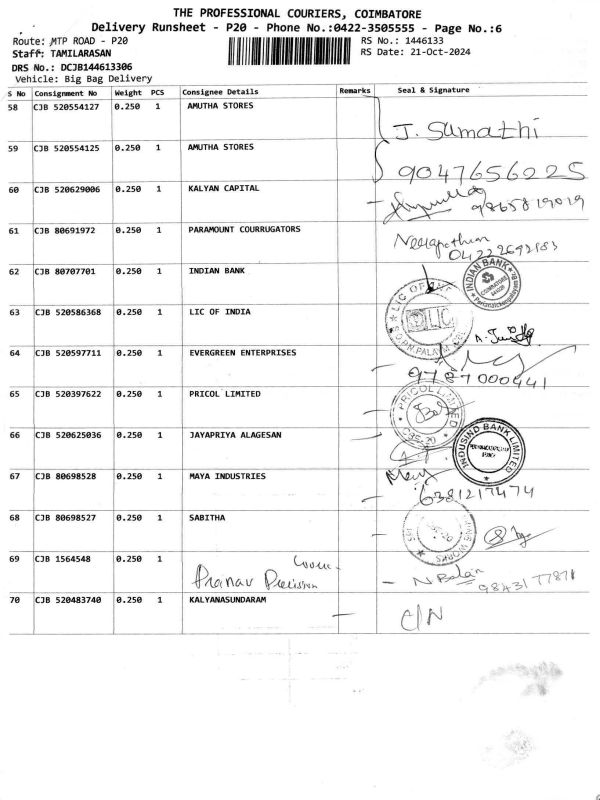 THE PROFESSIONAL COURIERS, COIMBATORE
Delivery Runsheet - P20 - Phone No.:0422-3505555 - Page No.:6
Route: MTP ROAD - P20
RS No.: 1446133
Staff: TAMILARASAN
RS Date: 21-Oct-2024
DRS No.: DCJB144613306
Vehicle: Big Bag Delivery
S No Consignment No Weight PCS Consignee Details Remarks Seal & Signature
58 CJB 520554127 0.250 1 AMUTHA STORES
J. Sumathi
59 CJB 520554125 0.250 1 AMUTHA STORES
9047656225
60 CJB 520629006 0.250 1 KALYAN CAPITAL
9865819019
61 CJB 80691972 0.250 1 PARAMOUNT COURRUGATORS
04222692183
62 CJB 80707701 0.250 1 INDIAN BANK
INDIAN BANK
63 CJB 520586368 0.250 1 LIC OF INDIA
LIC OF
LIC
64 CJB 520597711 0.250 1 EVERGREEN ENTERPRISES
9787000941
65 CJB 520397622 0.250 1 PRICOL LIMITED
PRICOL LIMITED
66 CJB 520625036 0.250 1 JAYAPRIYA ALAGESAN
INDUSIND BANK LIMITED
67 CJB 80698528 0.250 1 MAYA INDUSTRIES
6381217474
68 CJB 80698527 0.250 1 SABITHA
WORKS
69 CJB 1564548 0.250 1
Pranav Precision
N Balan
9843177871
70 CJB 520483740 0.250 1 KALYANASUNDARAM
C/N